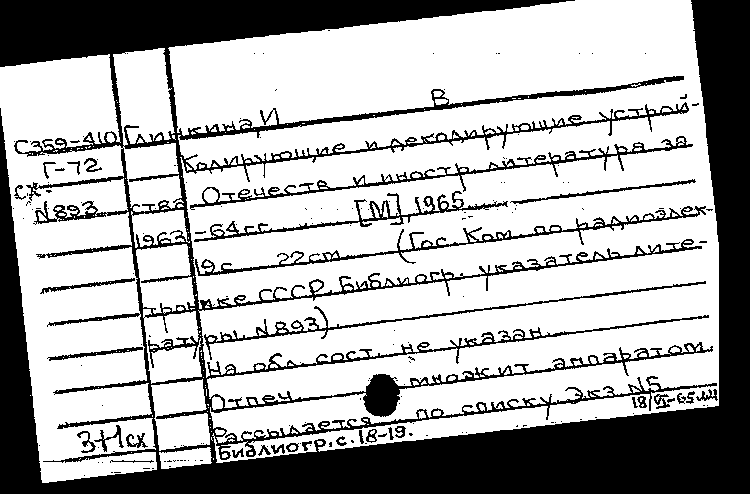 В
С359-410 Глинкина, И
Г-72 Кодирующие и декодирующие устрой-
сх.
N893 ства. Отечеств и иностр. литература за
1963-64 гг. [М], 1965.
19с 22см. (Гос. Ком. по радиоэлек-
тронике СССР. Библиогр. указатель лите-
ратуры. N893).
На обл. сост. не указан.
Отпеч. множит аппаратом.
Рассылается по списку Экз N5
3+1сх Библиогр. с. 18-19. 18/VI-65